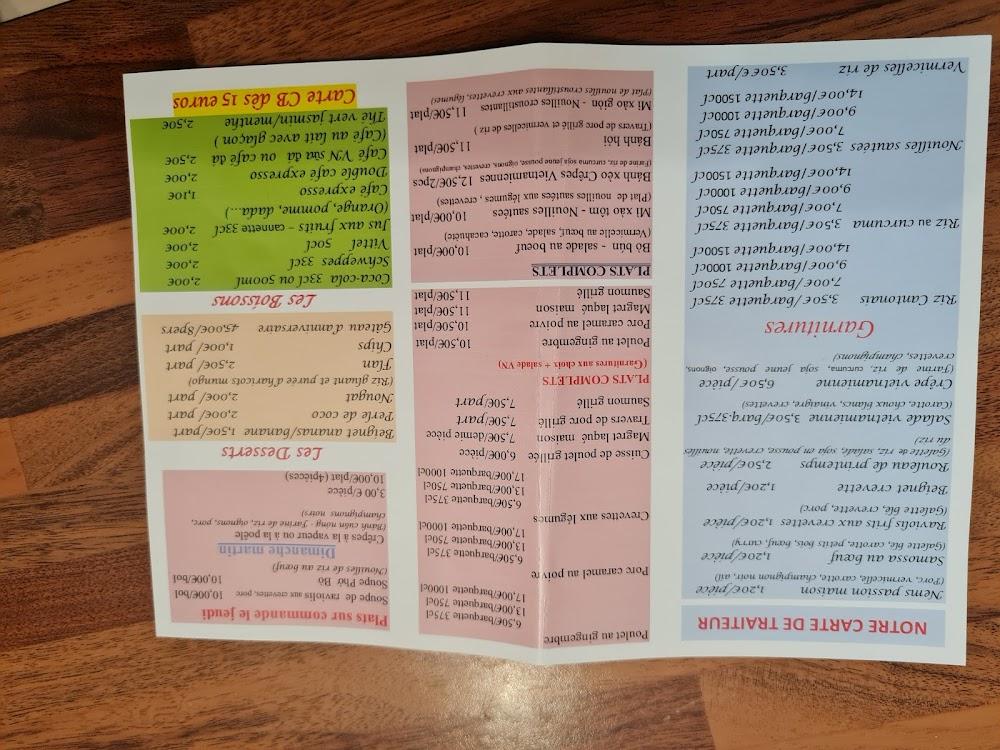 NOTRE CARTE DE TRAITEUR
Nems passion maison 1,20€/pièce
(Porc, vermicelle, carotte, champignon noir, ail)
Samossa au bœuf 1,20€/pièce
(Galette blé, carotte, petits bois, bœuf, curry)
Raviolis frits aux crevettes 1,20€/pièce
(Galette, blé, crevette, porc)
Beignet crevette 1,20€/pièce
Rouleau de printemps 2,50€/pièce
(Galette de riz, salade, soja en pousse, crevette, nouilles
du riz)
Salade vietnamienne 3,50€/barq 375cl
(Carotte, choux blancs, vinaigre, crevettes)
Crêpe vietnamienne 6,50€/pièce
(Farine de riz, curcuma, soja jeune pousse, oignons,
crevettes, champignons)
Garnitures
Riz Cantonais 3,50€/barquette 375cl
7,00€/barquette 750cl
9,00€/barquette 1000cl
14,00€/barquette 1500cl
Riz au curcuma 3,50€/barquette 375cl
7,00€/barquette 750cl
9,00€/barquette 1000cl
14,00€/barquette 1500cl
Nouilles sautées 3,50€/barquette 375cl
7,00€/barquette 750cl
9,00€/barquette 1000cl
14,00€/barquette 1500cl
Vermicelles de riz 3,50€/part
Poulet au gingembre
6,50€/barquette 375cl
13,00€/barquette 750
17,00€/barquette 1000cl
Porc caramel au poivre
6,50€/barquette 375cl
13,00€/barquette 750cl
17,00€/barquette 1000cl
Crevettes aux légumes
6,50€/barquette 375cl
13,00€/barquette 750
17,00€/barquette 1000cl
Cuisse de poulet grillée 6,00€/pièce
Magret laqué maison 7,50€/demie pièce
Travers de porc grillé 7,50€/part
Saumon grillé 7,50€/part
PLATS COMPLETS
(Garnitures aux choix + salade VN)
Poulet au gingembre 10,50€/plat
Porc caramel au poivre 10,50€/plat
Magret laqué maison 11,50€/plat
Saumon grillé 11,50€/plat
PLATS COMPLETS
Bò bún - salade au boeuf 10,00€/plat
(Vermicelle au bœuf, salade, carotte, cacahuète)
Mì xào tôm - Nouilles sautées 10,00€/plat
(Plat de nouilles sautées aux légumes , crevettes)
Bánh xào Crêpes Vietnamiennes 12,50€/2pcs
(Farine de riz, curcuma soja jeune pousse, oignons, crevettes, champignons)
Bánh hỏi 11,50€/plat
(Travers de porc grillé et vermicelles de riz )
Mì xào giòn - Nouilles croustillantes 11,50€/plat
(Plat de nouilles croustillantes crevettes, légumes)
Plats sur commande le jeudi
Soupe de raviolis aux crevettes, porc 10,00€/bol
Soupe Phở Bò 10,00€/bol
(Nouilles de riz au bœuf)
Dimanche martin
Crêpes à la vapeur ou à la poêle
(Bánh cuốn nóng - Farine de riz, oignons, porc,
champignons noirs)
3,00 €/pièce
10,00€/plat (4pièces)
Les Desserts
Beignet ananas/banane 1,50€/part
Perle de coco 2,00€/ part
Nougat 2,00€/ part
(Riz gluant et purée d'haricots mungo)
Flan 2,50€/ part
Chips 1,00€/ part
Gâteau d'anniversaire 45,00€/8pers
Les Boissons
Coca-cola 33cl ou 500ml 2,00€
Schweppes 33cl 2,00€
Vittel 50cl 2,00€
Jus aux fruits – cannette 33cl 2,00€
(Orange, pomme, dada,...)
Café expresso 1,10€
Double café expresso 2,00€
Café VN sữa đá ou café đá 2,50€
(Café au lait avec glaçon )
Thé vert jasmin/menthe 2,50€
Carte CB dès 15 euros